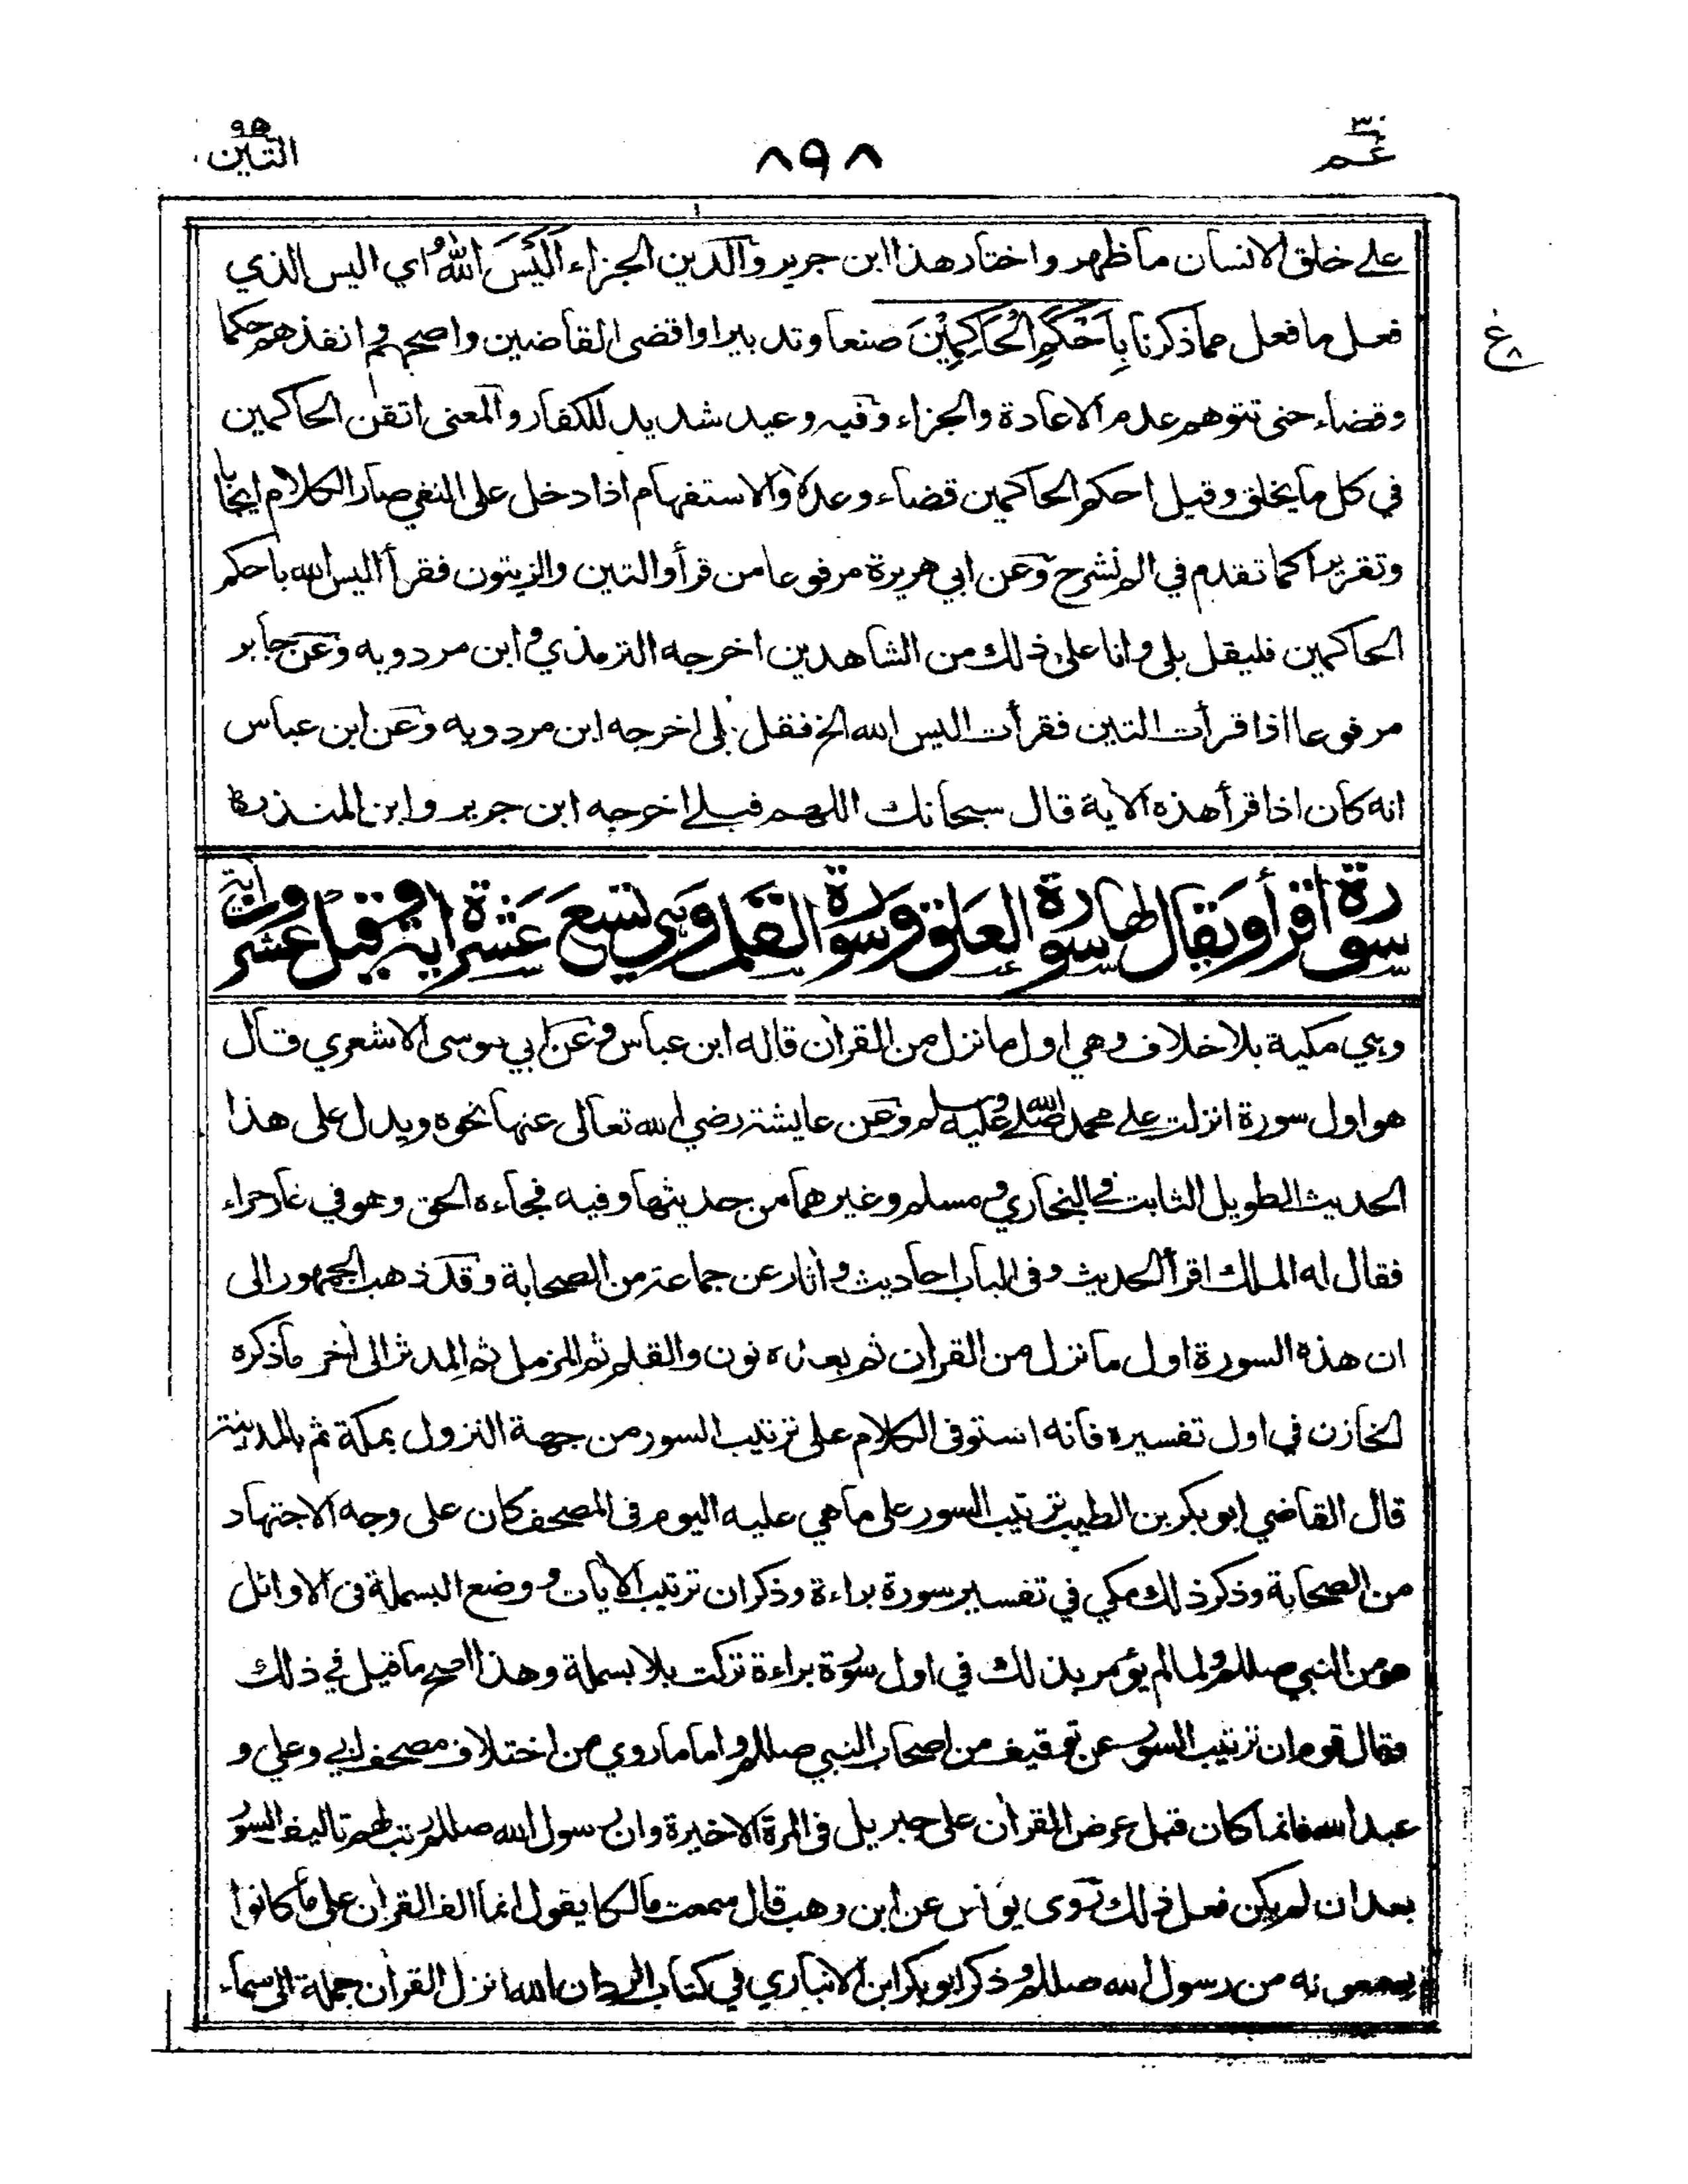 عم ٣٠
٨٩٨
التين ٩٥
على خلق الانسان ما ظهر واختار هذا ابن جرير والدين الجزاء اَلَيْسَ اللّٰهُ اي اليس الذي
فعل ما فعل مما ذكرنا بِاَحْكَمِ الْحَاكِمِيْنَ صنعا وتدبيرا واقضى القاضين واصحهم وانفذهم حكما
ع ٨
وقضاء حتى تتوهم عدم الاعادة والجزاء وفيه وعيد شديد للكفار والمعنى اتقن الحاكمين
في كل ما يخلق وقيل احكم الحاكمين قضاء وعدلا والاستفهام اذا دخل على النفي صار الكلام ايجابا
وتقريرا كما تقدم في الم نشرح وعن ابي هريرة مرفوعا من قرأ والتين والزيتون فقرأ اليس الله باحكم
الحاكمين فليقل بلى وانا على ذلك من الشاهدين اخرجه الترمذي وابن مردويه وعن جابر
مرفوعا اذا قرأت التين فقرأت اليس الله الخ فقل بلى اخرجه ابن مردويه وعن ابن عباس
انه كان اذا قرأ هذه الآية قال سبحانك اللهم فبلى اخرجه ابن جرير وابن المنذر
سورة اقرأ ويقال لها سورة العلق وسورة القلم وهي تسع عشرة اية وقيل عشرون اية
وهي مكية بلا خلاف وهي اول ما نزل من القرآن قاله ابن عباس وعن ابي موسى الاشعري قال
هو اول سورة انزلت على محمد صلى الله عليه وسلم وعن عايشة رضي الله تعالى عنها نحوه ويدل على هذا
الحديث الطويل الثابت في البخاري ومسلم وغيرهما من حديثها وفيه فجاءه الحق وهو في غار حراء
فقال له الملك اقرأ الحديث وفي الباب احاديث وآثار عن جماعة من الصحابة وقد ذهب الجمهور الى
ان هذه السورة اول ما نزل من القرآن ثم بعده نون والقلم ثم المزمل ثم المدثر الى آخر ما ذكره
الخازن في اول تفسيره فانه استوفى الكلام على ترتيب السور من جهة النزول بمكة ثم بالمدينة
قال القاضي ابو بكر بن الطيب ترتيب السور على ما هي عليه اليوم في المصحف كان على وجه الاجتهاد
من الصحابة وذكر ذلك مكي في تفسير سورة براءة وذكر ان ترتيب الآيات ووضع البسملة في الاوائل
هو من النبي صللم ولما لم يؤمر بذلك في اول سورة براءة تركت بلا بسملة وهذا اصح ما قيل في ذلك
وقال قوم ان ترتيب السور عن توقيف من اصحاب النبي صللم واما ما روي من اختلاف مصحف ابي وعلي و
عبد الله فانما كان قبل عرض القرآن على جبريل في المرة الاخيرة وان رسول الله صللم رتب لهم تاليف السور
بعد ان لم يكن فعل ذلك روى يونس عن ابن وهب قال سمعت مالكا يقول انما الف القرآن على ما كانوا
يسمعونه من رسول الله صللم وذكر ابو بكر ابن الانباري في كتاب الرد ان الله انزل القرآن جملة الى سماء